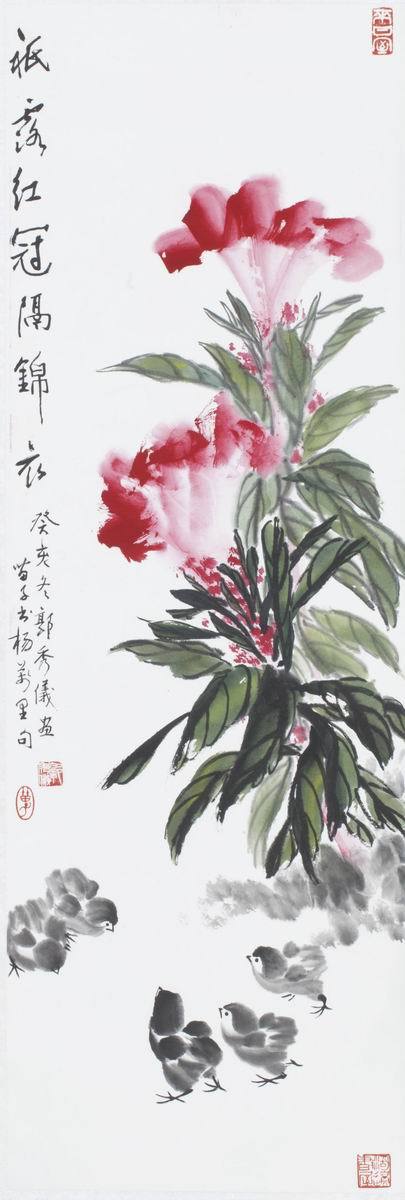 祇露红冠隔錦衣
癸亥冬郭秀儀画
苗子书杨萬里句